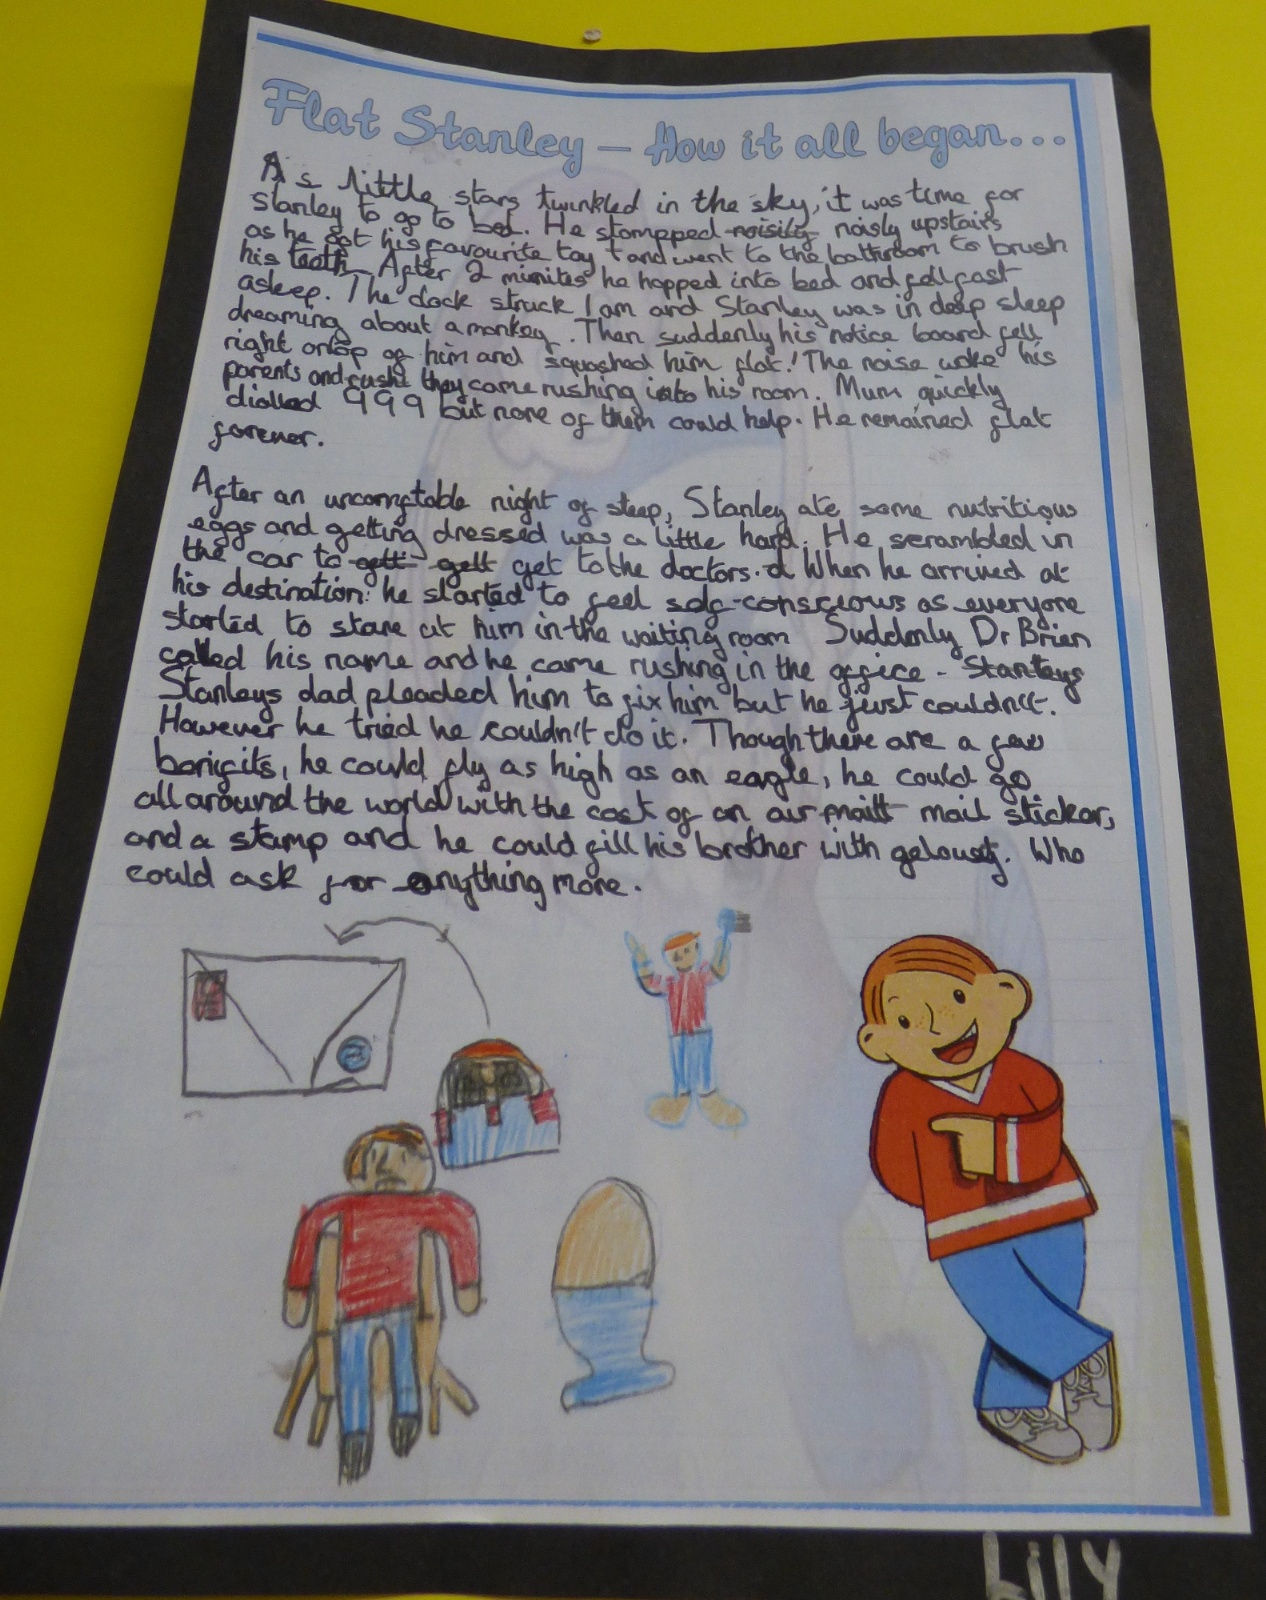 Flat Stanley – How it all began...
As little stars twinkled in the sky, it was time for
Stanley to go to bed. He stompped noisily noisly upstairs
as he got his favourite toy and went to the bathroom to brush
his teeth. After 2 minites he hopped into bed and fell fast
asleep. The clock struck 1 am and Stanley was in deep sleep
dreaming about a monkey. Then suddenly his notice board fell
right ontop of him and squashed him flat! The noise woke his
parents and they came rushing into his room. Mum quickly
dialled 999 but none of them could help. He remained flat
forever.
After an uncomftable night of sleep, Stanley ate some nutritious
eggs and getting dressed was a little hard. He scrambled in
the car to gett gett get to the doctors. When he arrived at
his destination: he started to feel self-conscious as everyone
started to stare at him in the waiting room Suddenly Dr Brien
called his name and he came rushing in the office - Stanleys
Stanleys dad pleaded him to fix him but he just couldn't.
However he tried he couldn't do it. Though there are a few
benifits, he could fly as high as an eagle, he could go
all around the world with the cost of an air maill mail sticker,
and a stamp and he could fill his brother with gelousy. Who
could ask for anything more.
Lily